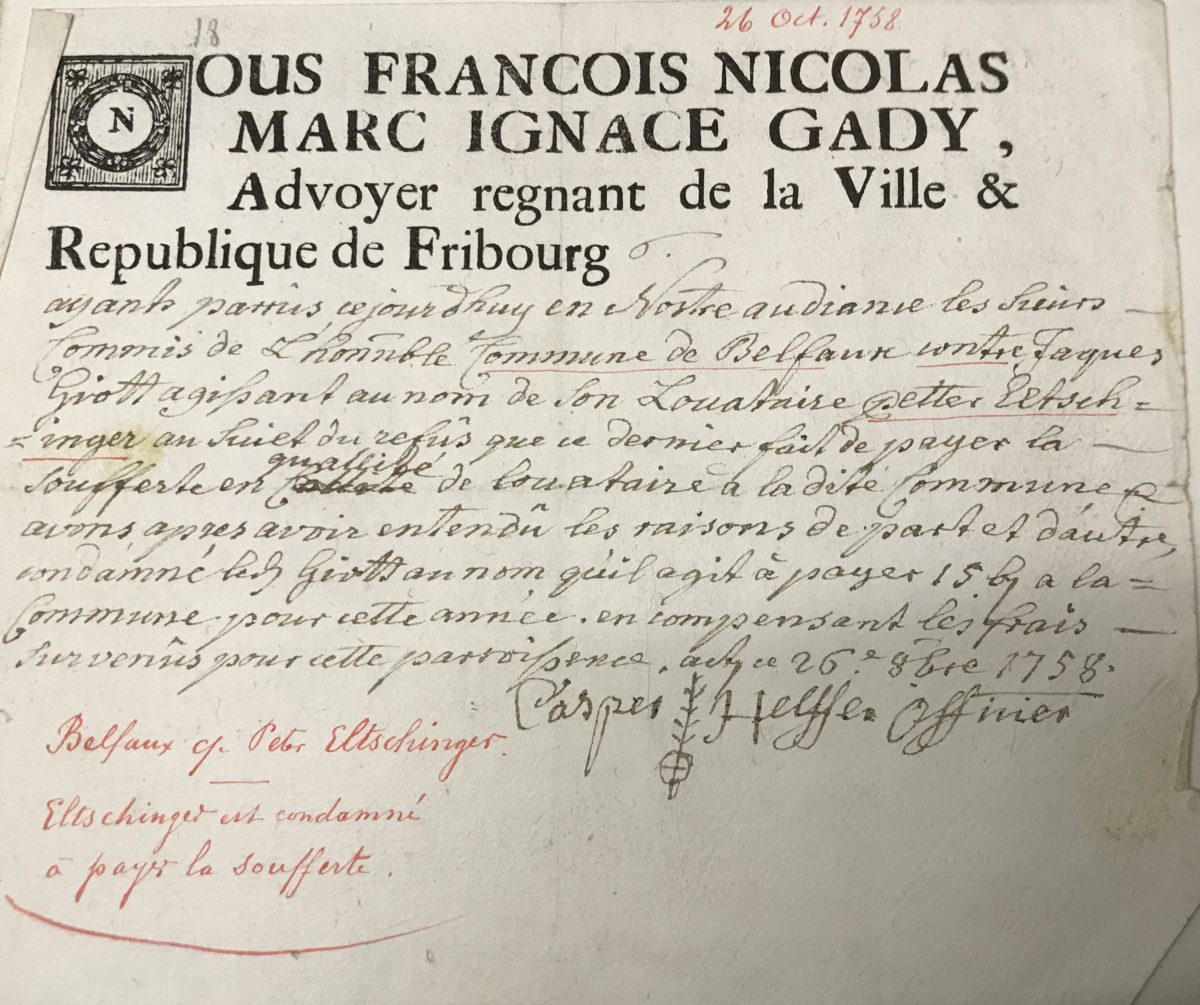 18
26 Oct. 1758
NOUS FRANCOIS NICOLAS
MARC IGNACE GADY,
Advoyer regnant de la Ville &
Republique de Fribourg
ayants parrûs cejourdhuy en Nostre audiance les sieurs
Commis de L'honnble Commune de Belfaux contre Jaques
Giott agissant au nom de son Louataire petter Eltsch=
=inger au suiet du refûs que ce dernier fait de payer la
soufferte en quallité de louataire a la dite Commune
avons apres avoir entendû les raisons de part et d'autre,
condamné led Giott au nom qu'il agit à payer 15 bz a la=
Commune pour cette année. en compensant les frais
survenûs pour cette parroissence. act ce 26.e 8bre 1758.
Casper Helffer Officier
Belfaux c/. Peter Eltschinger.
Eltschinger est condamné
à payer la soufferte.